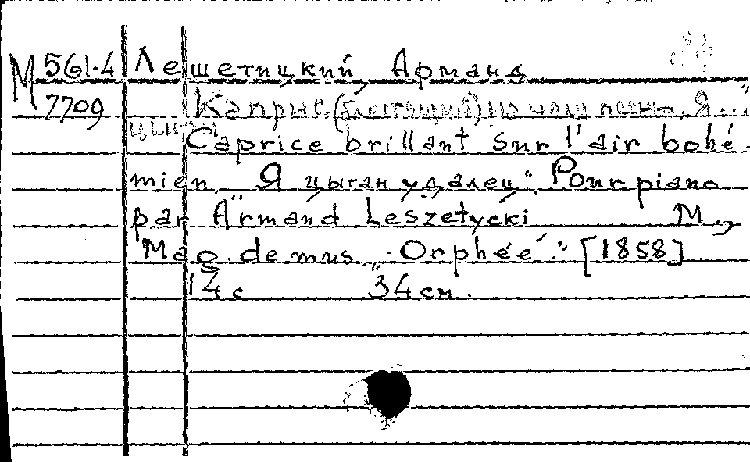 М 561-4 Лешетицкий, Арманд
7709 Каприс (блестящий) на цыг. песню „Я ..."
Caprice brillant sur l'air bohé-
mien „Я цыган удалец". Pour piano
par Armand Leszetycki М.,
Mag. de mus. „Orphée". [1858]
14 с 34 см.